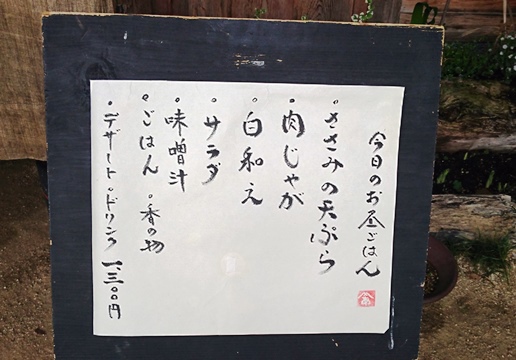 今日のお昼ごはん
。ささみの天ぷら
。肉じゃが
。白和え
。サラダ
。味噌汁
。ごはん 。香の物
。デザート。ドリンク 一、三〇〇円